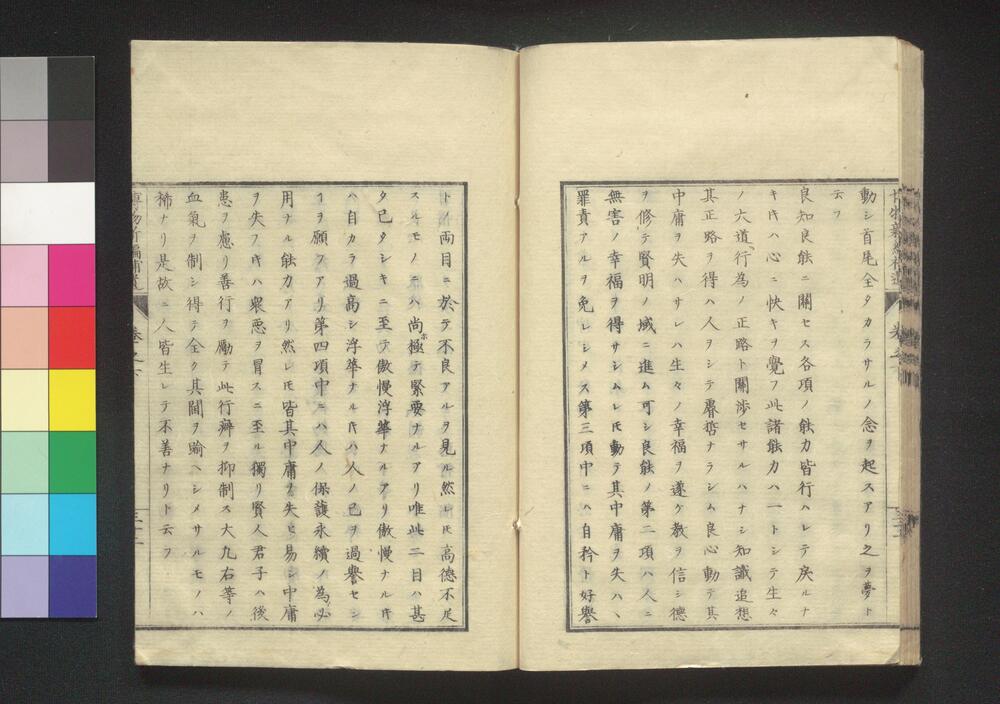 動シ首尾全タカラサルノ念ヲ起スアリ之ヲ夢ト
云フ
良知良能ニ關セス各項ノ能力皆行ハレテ戾ルナ
キ𪜈ハ心ニ快キヲ覺フ此諸能力ハ一トシテ生々
ノ大道行為ノ正路ト關渉セサルハナシ知識追想
其正路ヲ得ハ人ヲシテ睿哲ナラシム良心動テ其
中庸ヲ失ハサレハ生々ノ幸福ヲ遂ケ教ヲ信シ德
ヲ修テ賢明ノ域ニ進ム可シ良能ノ第二項ハ人ニ
無害ノ幸福ヲ得サシムレ𪜈動テ其中庸ヲ失ハヽ
罪責アルヲ免レシメス第三項中ニハ自矜ト好譽
ト ノ兩目ニ於テ不良アルヲ見ル然レ𪜈高德不足
スルモノニハ尚極テ緊要ナルアリ唯此二目ハ甚
タ已タシキニ至テ傲慢浮華ナルアリ傲慢ナル𪜈
ハ自カラ過高シ浮華ナル𪜈ハ人ノ己ヲ過譽セシ
ヿヲ願フアリ第四項中ニハ人ノ保護永續ノ為必
用ナル能力アリ然レ𪜈皆其中庸ヲ失ヒ易シ中庸
ヲ失フ𪜈ハ衆惡ヲ冒スニ至ル獨リ賢人君子ハ後
患ヲ慮リ善行ヲ勵テ此行癖ヲ抑制ス大九右等ノ
血氣ヲ制シ得テ全ク其閫ヲ踰ヘシメサルモノハ
稀ナリ是故ニ人皆生レテ不善ナリト云フ
博物新編補遺
卷之下